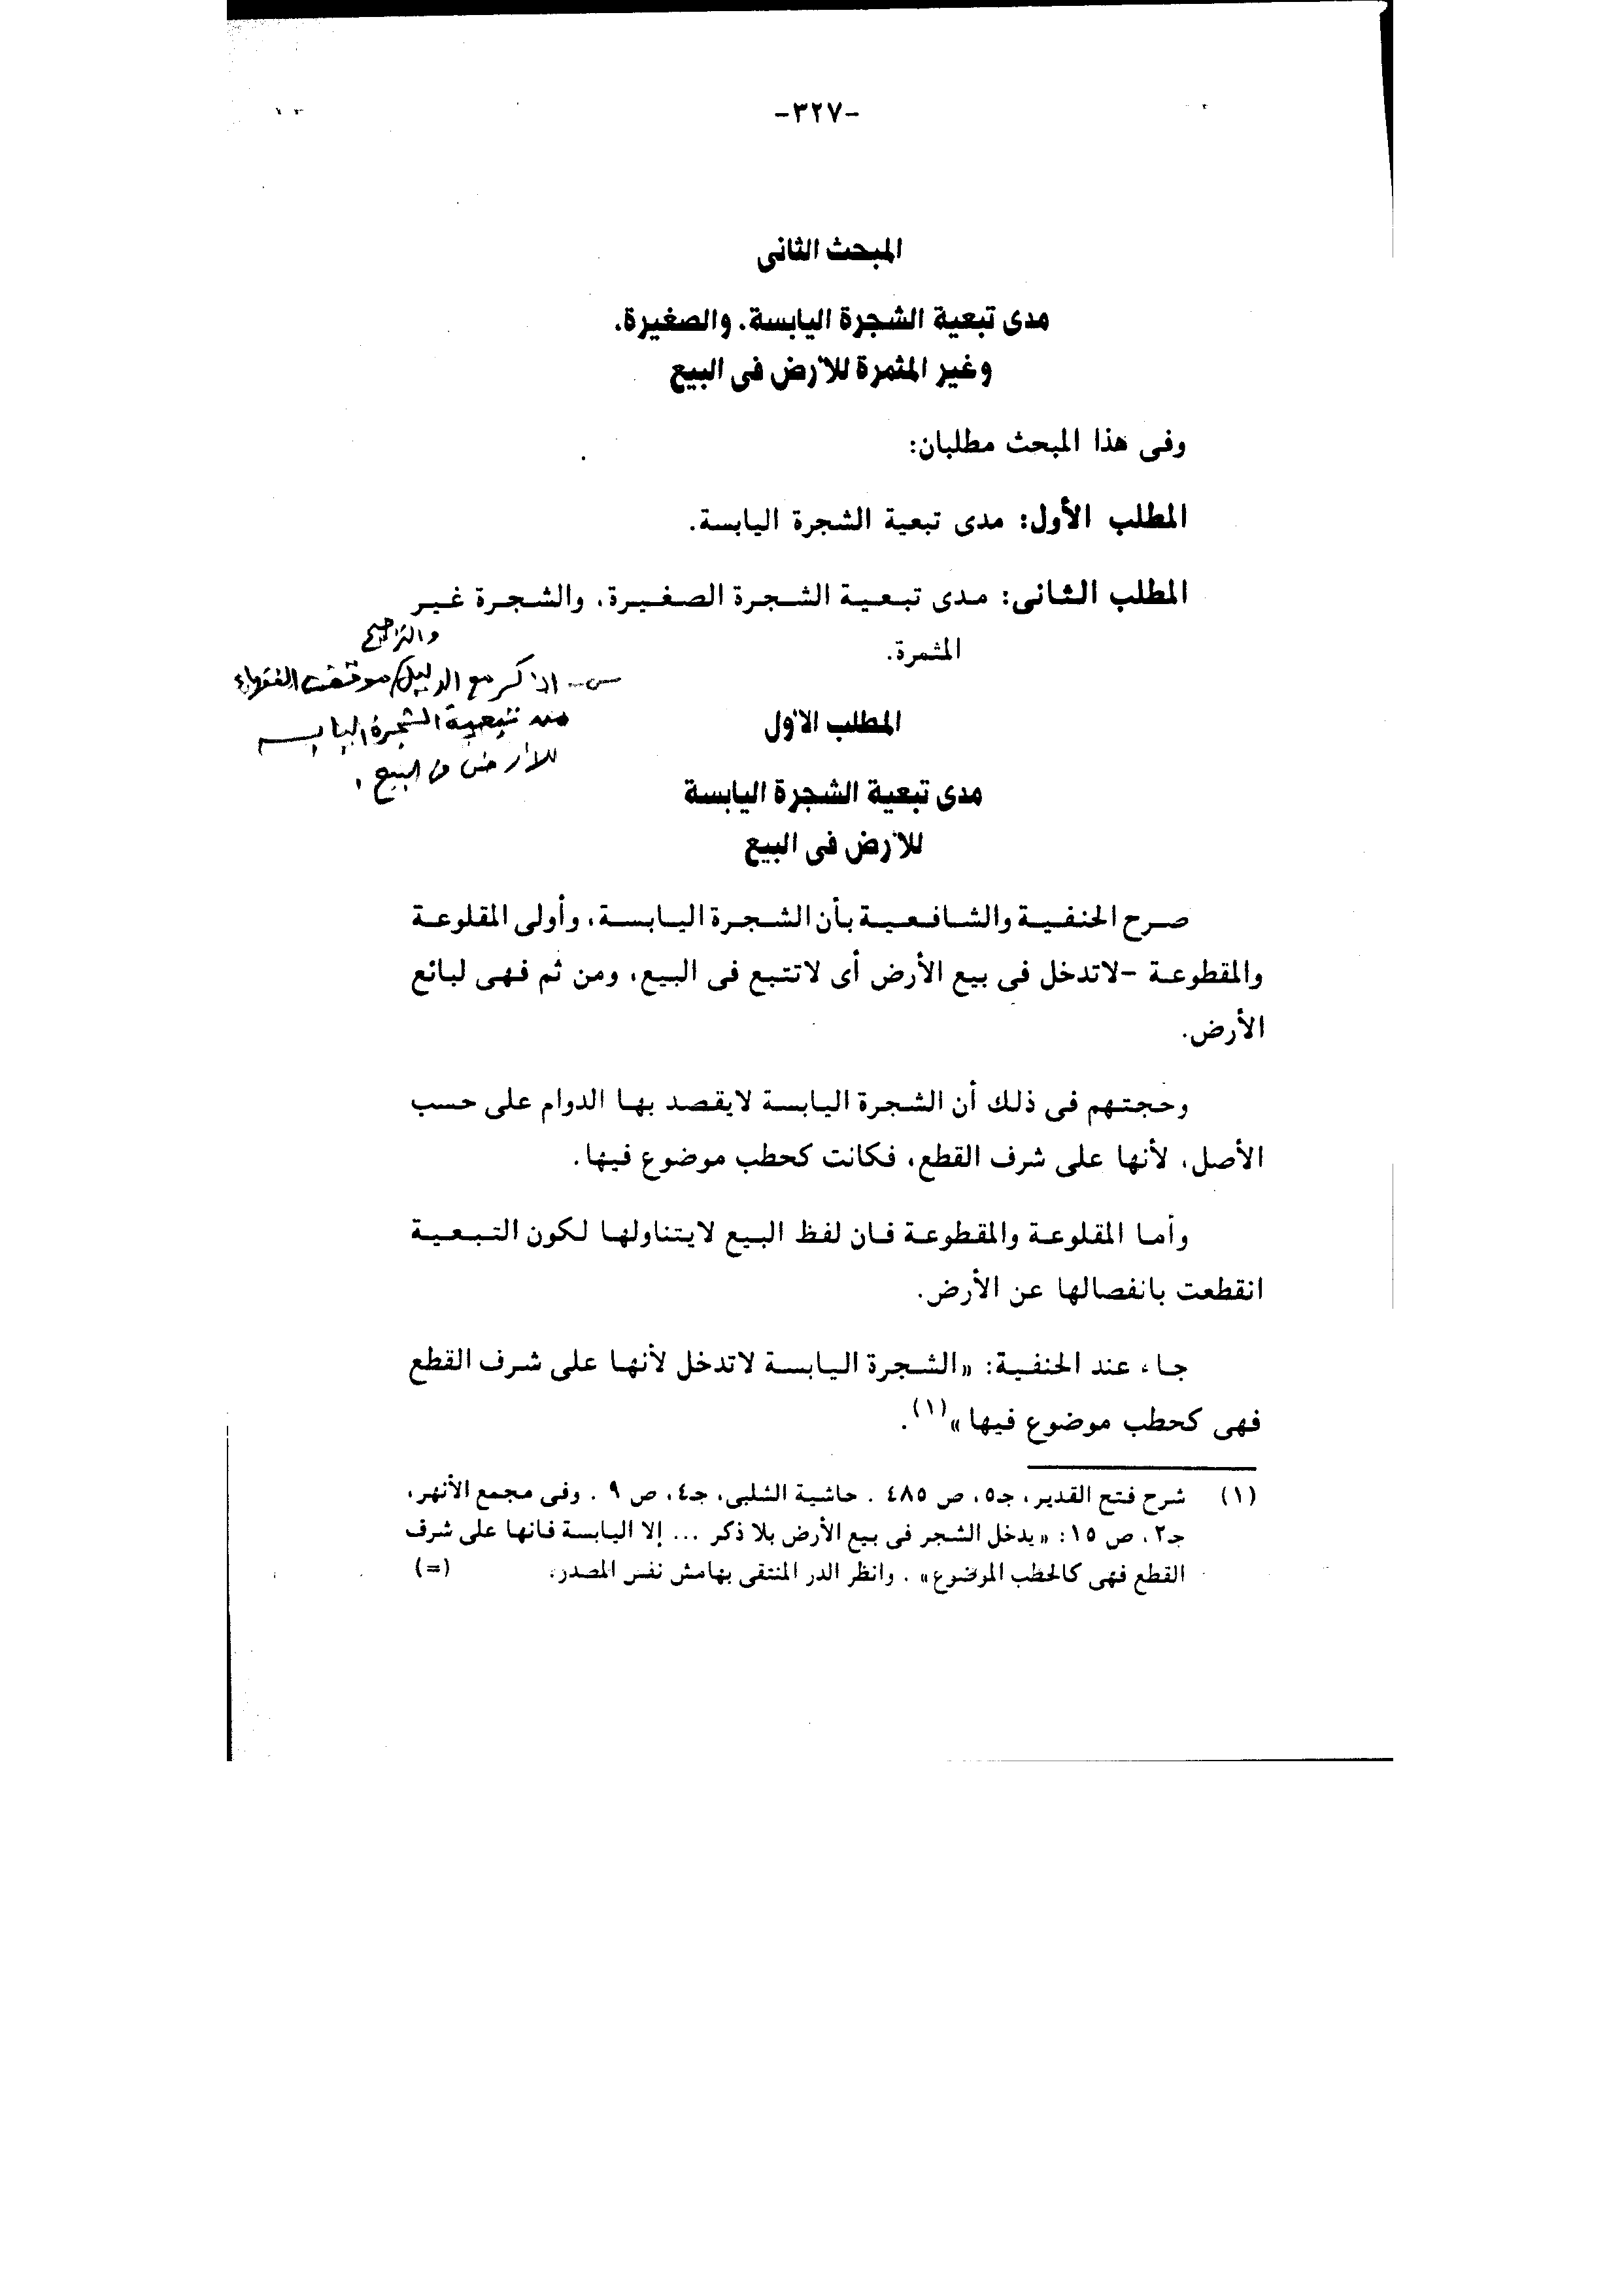 -٣٢٧-
المبحث الثانى
مدى تبعية الشجرة اليابسة، والصغيرة،
وغير المثمرة للأرض فى البيع
وفى هذا المبحث مطلبان:
المطلب الأول: مدى تبعية الشجرة اليابسة.
المطلب الثانى: مدى تبعية الشجرة الصغيرة، والشجرة غير
المثمرة.
والترجيح
س - اذكر مع الدليل موقف الفقهاء
من تبعية الشجرة اليابسة
للأرض فى البيع.
المطلب الأول
مدى تبعية الشجرة اليابسة
للأرض فى البيع
صرح الحنفية والشافعية بأن الشجرة اليابسة، وأولى المقلوعة
والمقطوعة -لاتدخل فى بيع الأرض أى لاتتبع فى البيع، ومن ثم فهى لبائع
الأرض.
وحجتهم فى ذلك أن الشجرة اليابسة لايقصد بها الدوام على حسب
الأصل، لأنها على شرف القطع، فكانت كحطب موضوع فيها.
وأما المقلوعة والمقطوعة فان لفظ البيع لايتناولها لكون التبعية
انقطعت بانفصالها عن الأرض.
جاء عند الحنفية: «الشجرة اليابسة لاتدخل لأنها على شرف القطع
فهى كحطب موضوع فيها»(١).
(١) شرح فتح القدير، جـ٥، ص ٤٨٥ . حاشية الشلبى، جـ٤، ص ٩ . وفى مجمع الأنهر،
جـ٢، ص ١٥: «يدخل الشجر فى بيع الأرض بلا ذكر ... إلا اليابسة فانها على شرف
القطع فهى كالحطب الموضوع» . وانظر الدر المنتقى بهامش نفس المصدر، (=)